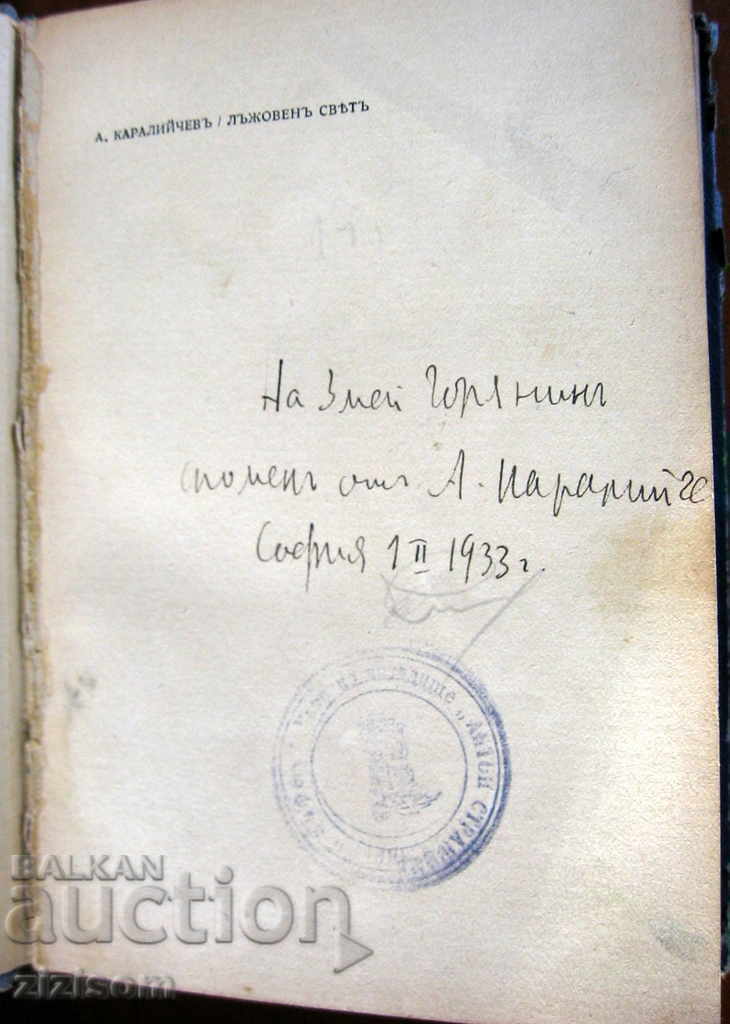 А. КАРАЛИЙЧЕВЪ / ЛЪЖОВЕНЪ СВѢТЪ
На Змей Горянинъ
споменъ отъ А. Каралийче
София 1 II 1933 г.
"АНТОН СТРАШИМИ
BALKAN
auction
zizisom